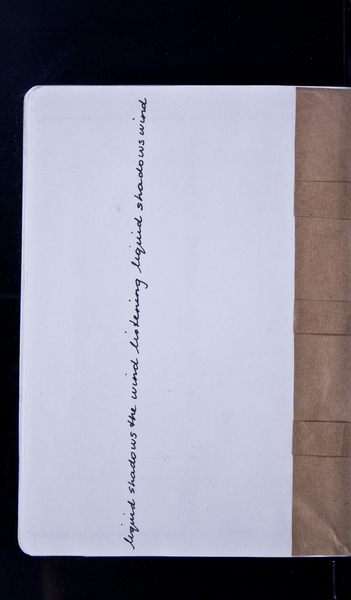 liquid shadows the wind listening liquid shadows wind